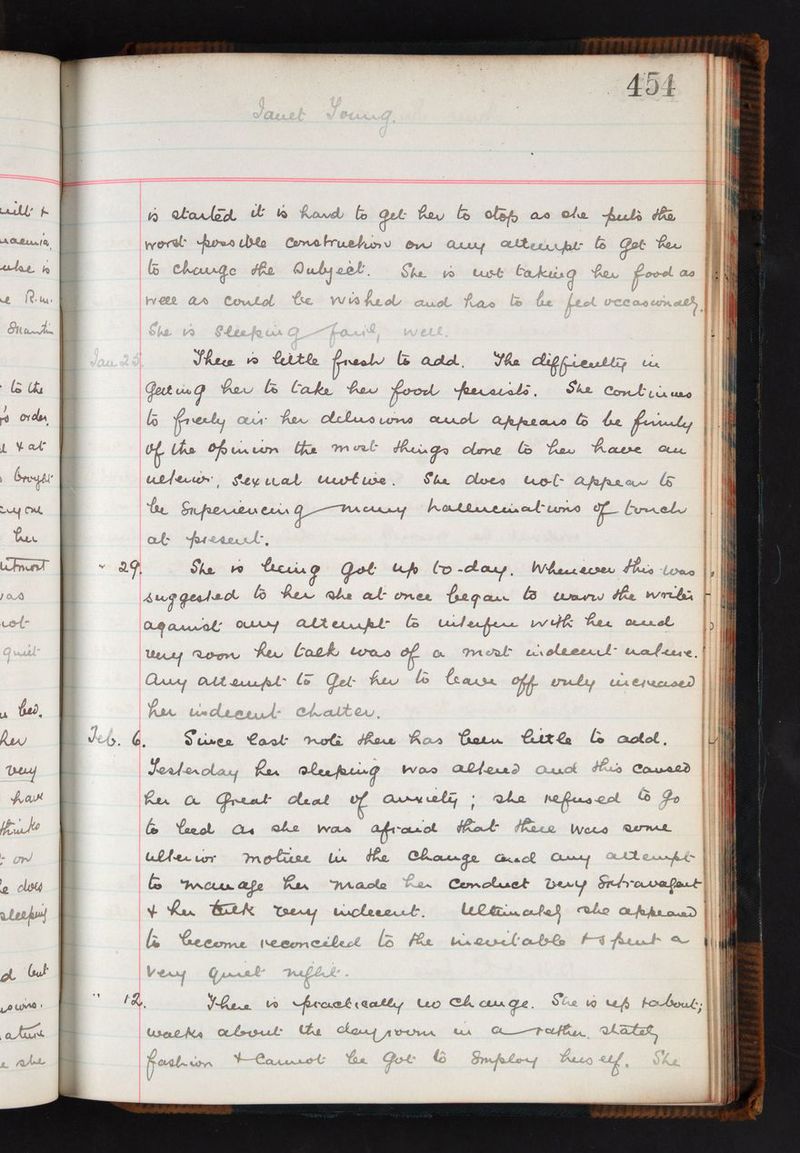 454
Janet Young.
is started it is hard to get her to stop as she puts the
worst possible construction on any attempt to get her
to change the subject. She is not taking her food as
well as could be wished and has to be fed occasionally.
She is sleeping fairly well.
Jan 25. There is little fresh to add. The difficulty in
getting her to take her food persists. She continues
to freely air her delusions and appears to be firmly
of the opinion the most things done to her have an
ulterior, sexual motive. She does not appear to
be experiencing many hallucinations of touch
at present.
" 29. She is being got up to-day. Whenever this was
suggested to her she at once began to warn the writer
against any attempt to interfere with her and
very soon her talk was of a most indecent nature.
Any attempt to get her to leave off only increased
her indecent chatter.
Feb. 6. Since last note there has been little to add.
Yesterday her sleeping was altered and this caused
her a great deal of anxiety; she refused to go
to bed as she was afraid that there was some
ulterior motive in the change and any attempt
to manage her made her conduct very extravagant
& her talk very indecent. Ultimately she appeared
to become reconciled to the inevitable & spent a
very quiet night.
" 12. There is practically no change. She is up & about;
walks about the dayroom in a rather stately
fashion & cannot be got to employ herself. She